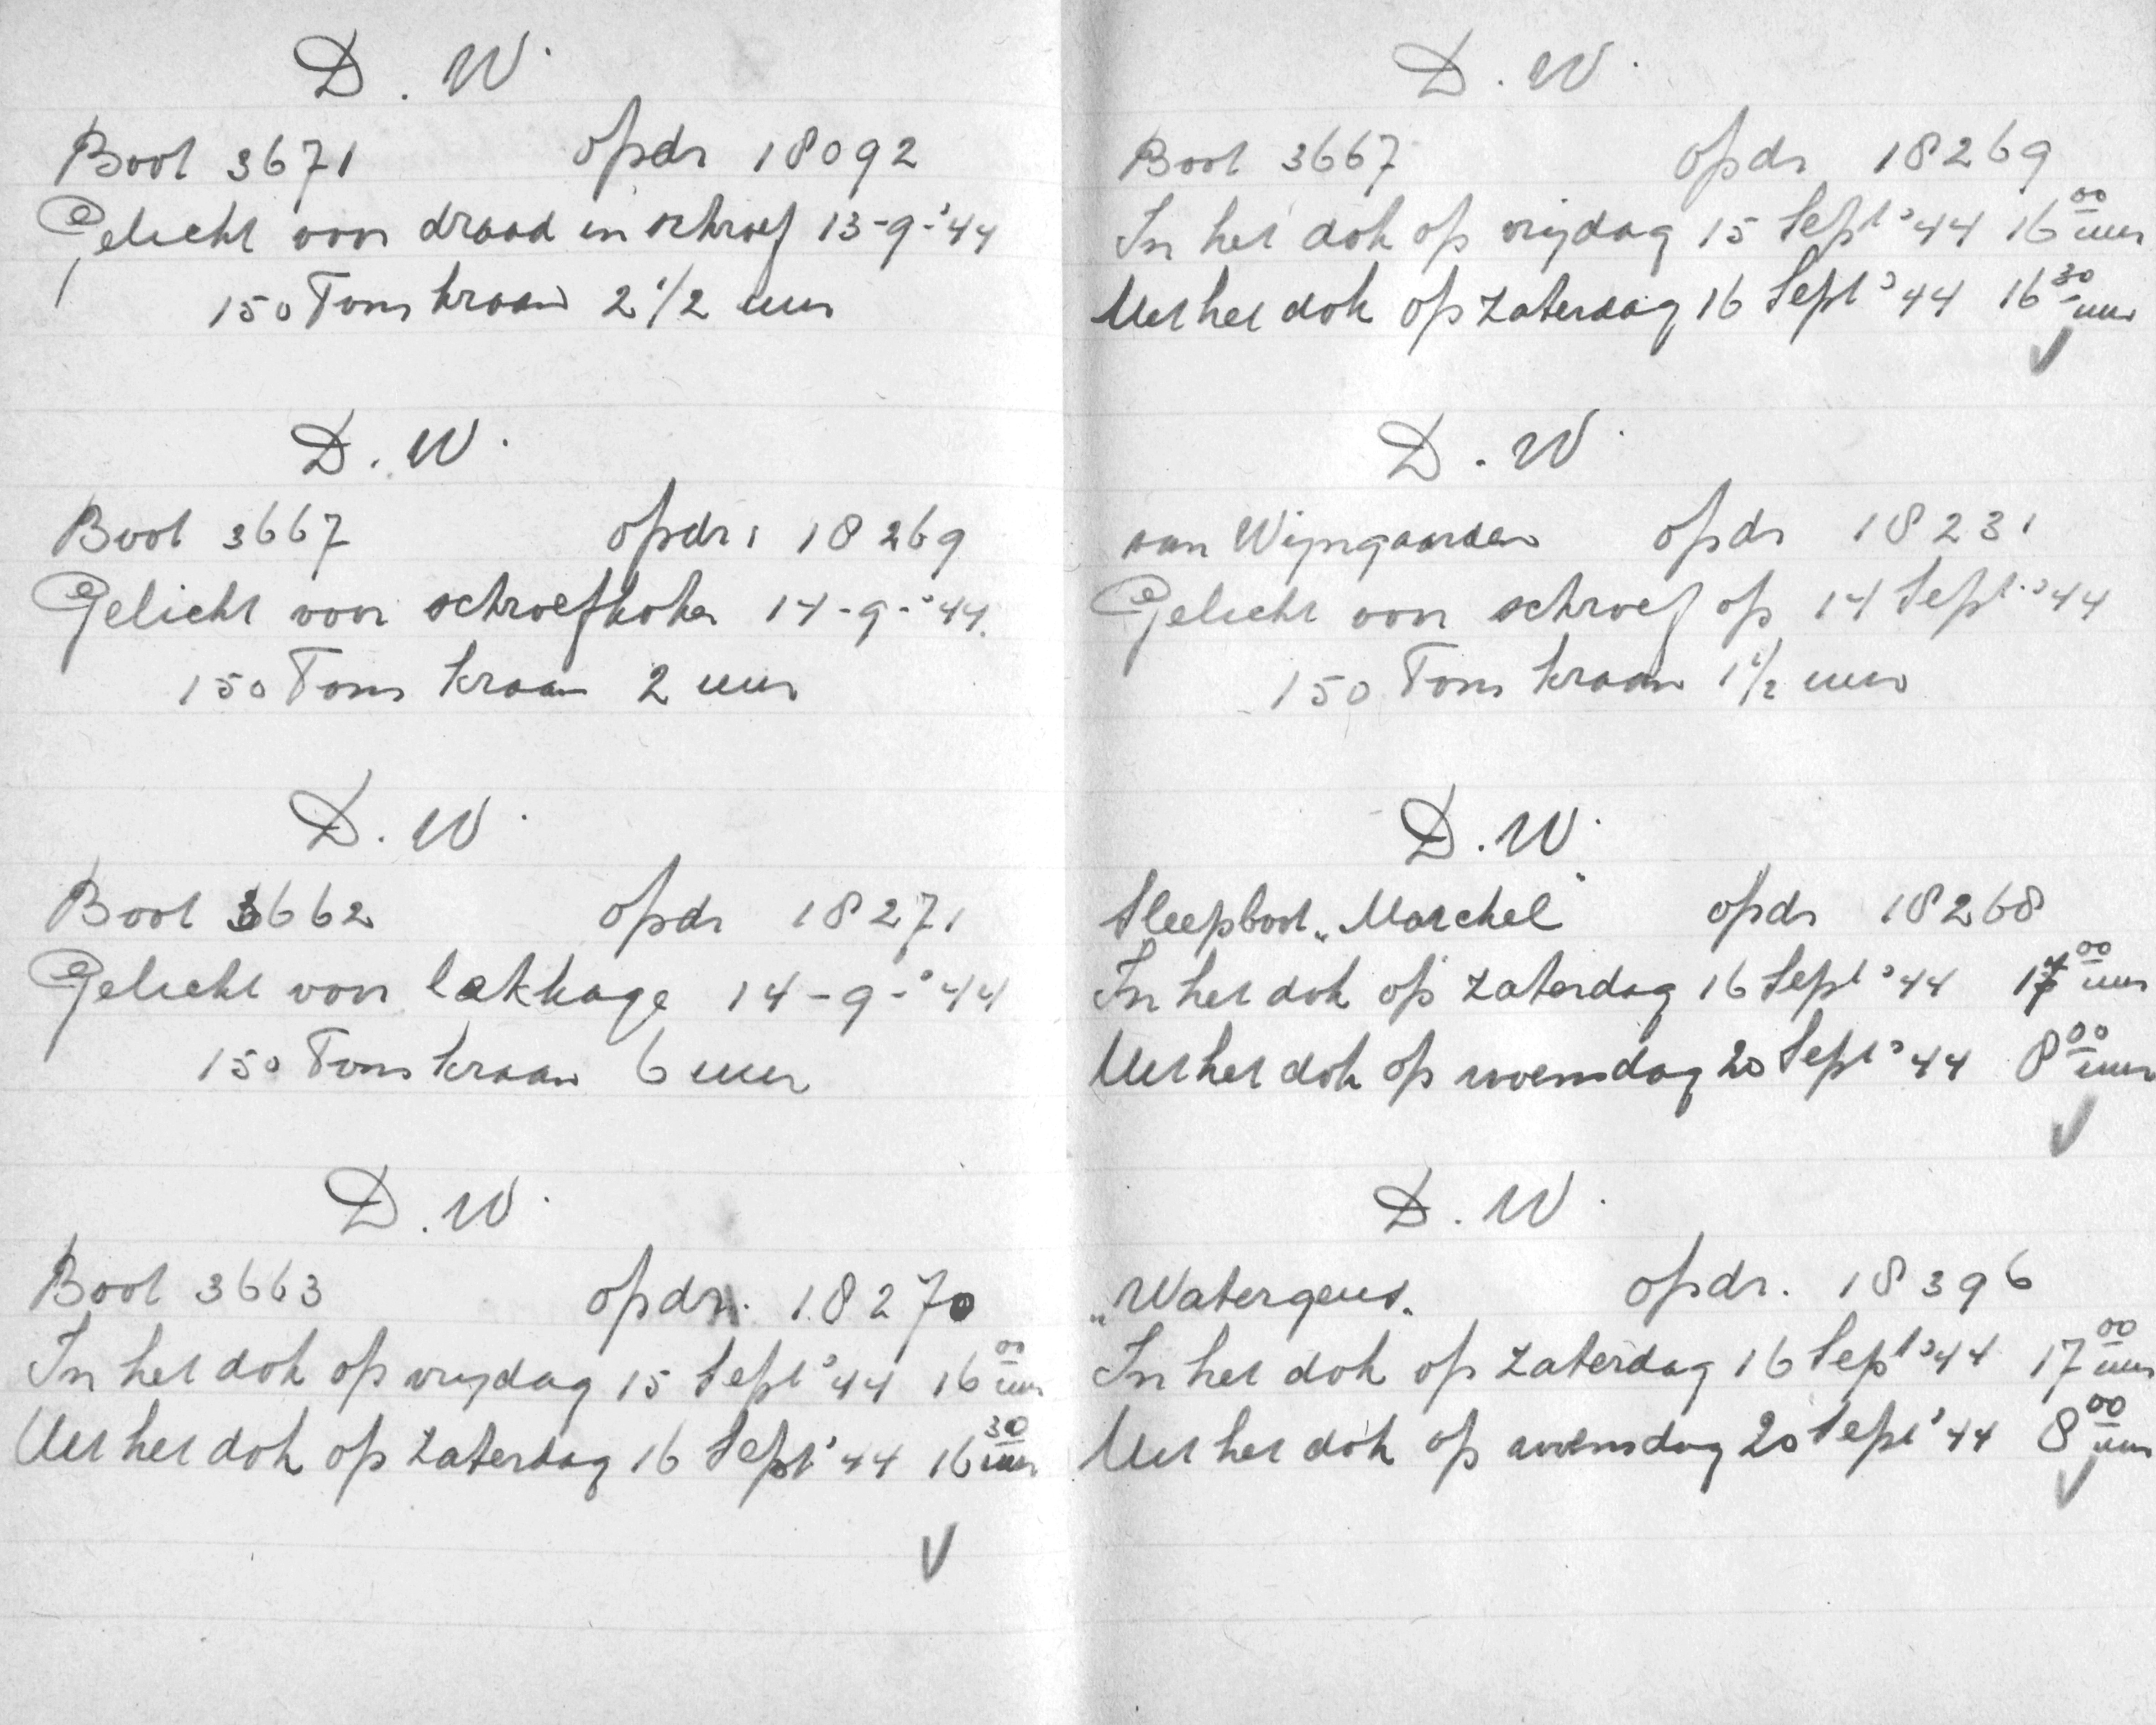 D. W.
Boot 3671 opdr 18092
Gelicht voor draad in schroef 13-9-'44
150 Tons kraan 2 1/2 uur
D. W.
Boot 3667 opdr. 18269
Gelicht voor schroefkoker 14-9-'44.
150 Tons kraan 2 uur
D. W.
Boot 3662 opdr 18271
Gelicht voor lekkage 14-9-'44
150 Tons kraan 6 uur
D. W.
Boot 3663 opdr. 18270
In het dok op vrijdag 15 Sept '44 16 00 uur
Uit het dok op zaterdag 16 Sept '44 16 30 uur
D. W.
Boot 3667 opdr 18269
In het dok op vrijdag 15 Sept '44 16 00 uur
Uit het dok op zaterdag 16 Sept '44 16 30 uur
D. W.
van Wijngaarden opdr 18231
Gelicht voor schroef op 14 Sept. '44
150 Tons kraan 1 1/2 uur
D. W.
Sleepboot „Marchel" opdr 18268
In het dok op zaterdag 16 Sept '44 uur
Uit het dok op woensdag 20 Sept '44 8 00 uur
D. W.
„Watergeus„ opdr. 18396
In het dok op zaterdag 16 Sept '44 17 00 uur
Uit het dok op woensdag 20 Sept '44 8 00 uur